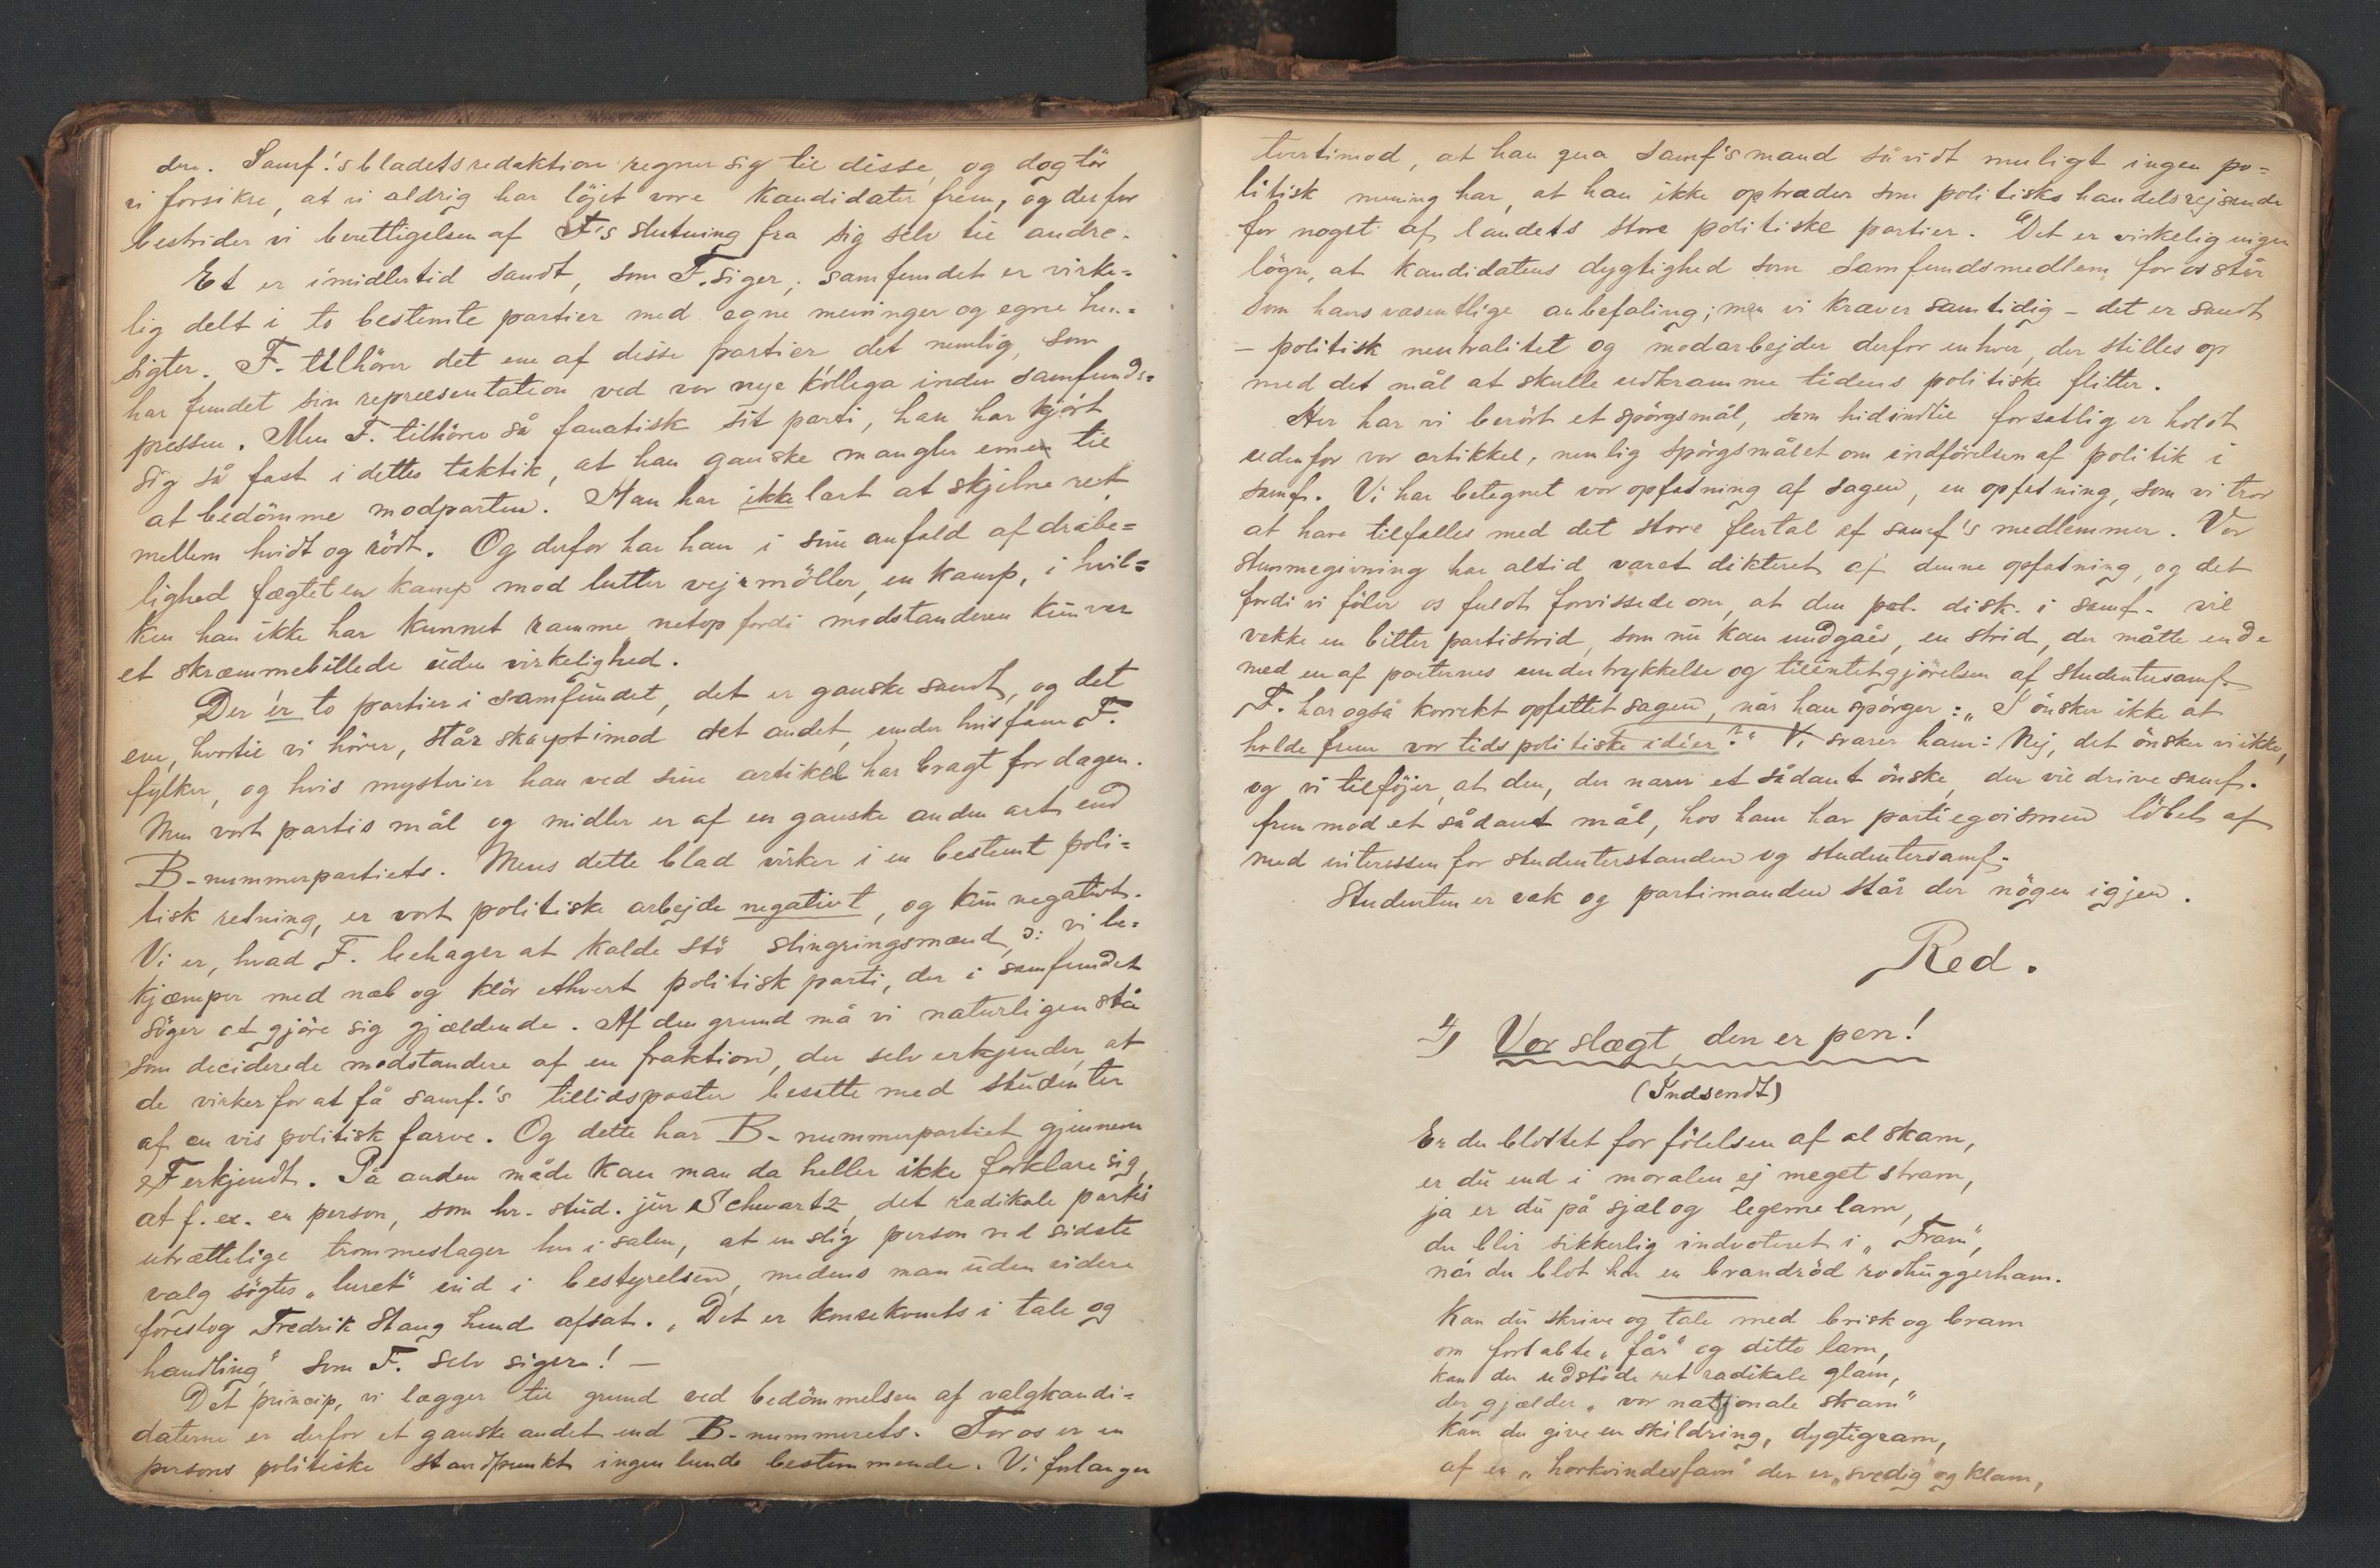 dre. Samf.'s bladetsredaktion regner sig til disse, og dog tör
vi forsikre, at vi aldrig har löjet vore kandidater frem, og derfor
bestrider vi berettigelsen af F's slutning fra sig selv til andre.
Et er imidlertid sandt, som F. siger; samfundet er virke=
lig delt i to bestemte partier med egne meninger og egne hen=
sigter. F. tilhörer det ene af disse partier det nemlig, som
har fundet sin repræsentation ved vor nye kollega inden samfunds=
pressen. Men F. tilhörer så fanatisk sit parti, han har kjört
sig så fast i dettes taktik, at han ganske mangler evnen til
at bedömme modparten. Han har ikke lært at skjelne ret
mellem hvidt og rödt. Og derfor har han i sine anfald af dræbe=
lighed fægtet en kamp mod lutter vejrmöller, en kamp, i hvil=
ken han ikke har kunnet ramme netop fordi modstanderen kun var
et skræmmebillede uden virkelighed.
Der er to partier i samfundet, det er ganske sandt, og det
ene, hvortil vi hörer, står skarpt imod det andet, under hvis fane F.
fylker, og hvis mysterier han ved sine artikel har bragt for dagen.
Men vort partis mål og midler er af en ganske anden art end
B-nummerpartiets. Mens dette blad virker i en bestemt poli=
tisk retning, er vort politiske arbejde negativt, og kun negativt.
Vi er, hvad F. behager at kalde stö slingringsmænd, ɔ: vi be=
kjæmper med næb og klör ethvert politisk parti, der i samfundet
söger at gjöre sig gjældende. Af den grund må vi naturligen stå
som deciderede modstandere af en fraktion, der selv erkjender, at
de virker for at få samf.'s tillidsposter besatte med studenter
af en vis politisk farve. Og dette har B-nummerpartiet gjennem
F erkjendt. På anden måde kan man da heller ikke forklare sig,
at f. ex. en person, som hr. stud. jur Schwartz, det radikale partis
utrættelige trommeslager her i salen, at en slig person ved sidste
valg sögtes „luret" ind i bestyrelsen, medens man uden videre
foreslog Fredrik Stang Lund afsat. „Det er konsekvents i tale og
handling", som F. selv siger! —
Det princip, vi lægger til grund ved bedömmelsen af valgkandi=
daterne er derfor et ganske andet end B-nummerets. For os er en
persons politiske standpunkt ingenlunde bestemmende. Vi forlanger
tvertimod, at han qua samf's mand såvidt muligt ingen po=
litisk mening har, at han ikke optræder som politisk handelsrejsende
for noget af landets store politiske partier. Det er virkelig ingen
lögn, at kandidatens dygtighed som samfundsmedlem for os står
som hans væsentlige anbefaling; men vi kræver samtidig – det er sandt
– politisk neutralitet og modarbejder derfor enhver, der stilles op
med det mål at skulle udkramme tidens politiske flitter.
Her har vi berört et spörgsmål, som hidindtil forsætlig er holdt
udenfor vor artikkel, nemlig spörgsmålet om indförelsen af politik i
samf. Vi har betegnet vor opfatning af sagen, en opfatning, som vi tror
at have tilfælles med det store flertal af samf's medlemmer. Vor
stemmegivning har altid været dikteret af denne opfatning, og det
fordi vi föler os fuldt forvissede om, at den pol. disk. i samf. vil
vække en bitter partistrid, som nu kan undgåes, en strid, der måtte ende
med en af parternes undertrykkelse og tilintetgjörelsen af studentersamf.
F. har også korrekt opfattet sagen, når han spörger: „I önsker ikke at
holde frem vor tids politiske idéer?" Vi svarer ham: Nej, det önsker vi ikke,
og vi tilföjer, at den, der nærer et sådant önske, der vil drive samf.
frem mod et sådant mål, hos ham har partiegoismen löbet af
med interessen for studenterstanden og studentersamf.
Studenten er væk og partimanden står der nögen igjen.
Red.
4) Vor slægt, den er pen!
(Indsendt)
Er du blottet for fölelsen af al skam,
er du end i moralen ej meget stram,
ja er du på sjæl og legeme lam,
du blir sikkerlig indvoteret i „Fram",
når du blot har en brandröd rodhuggerham.
Kan du skrive og tale med brisk og bram
om fortabte „får" og ditto lam,
kan du udstöde ret radikale glam,
der gjælder „vor nationale skam"
kan du give en skildring, dygtig gram,
af en „horkvindesfam" der er „svedig" og klam,